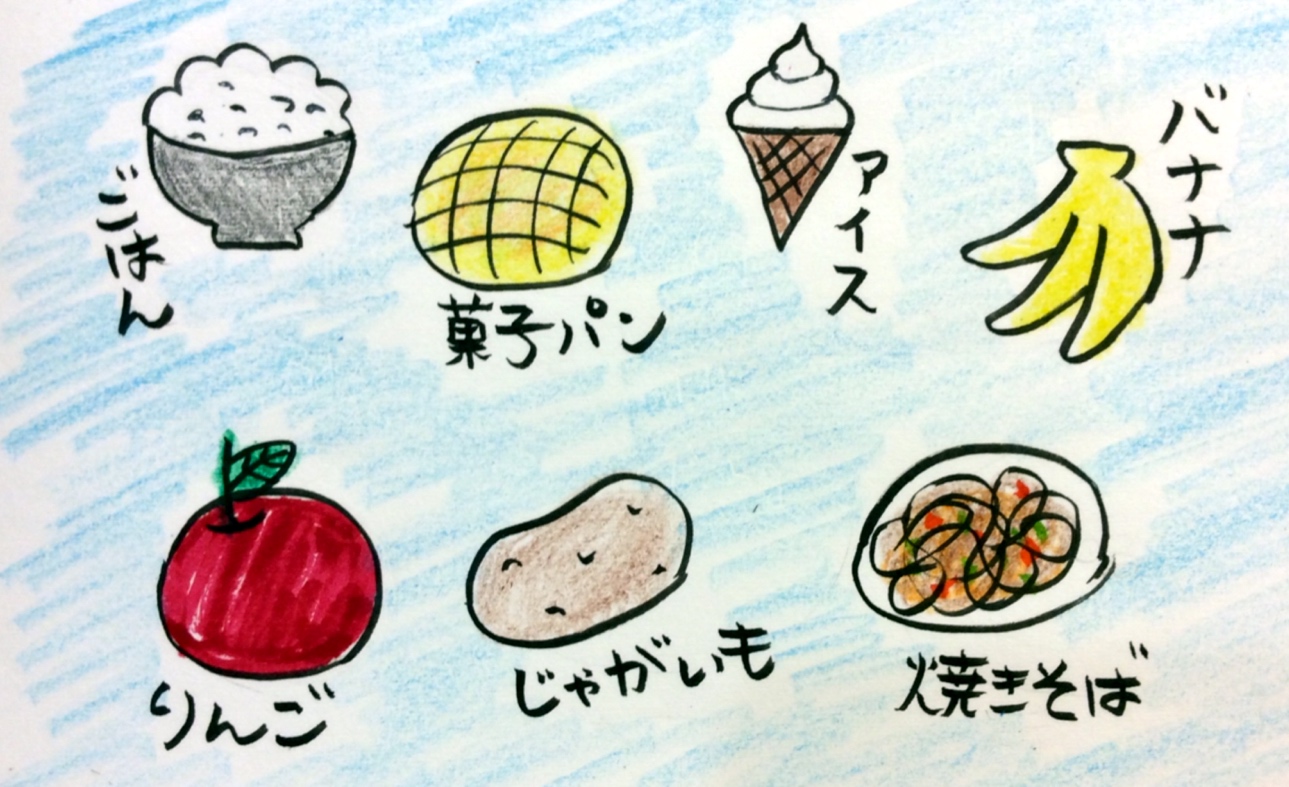 ごはん
菓子パン
アイス
バナナ
りんご
じゃがいも
焼きそば